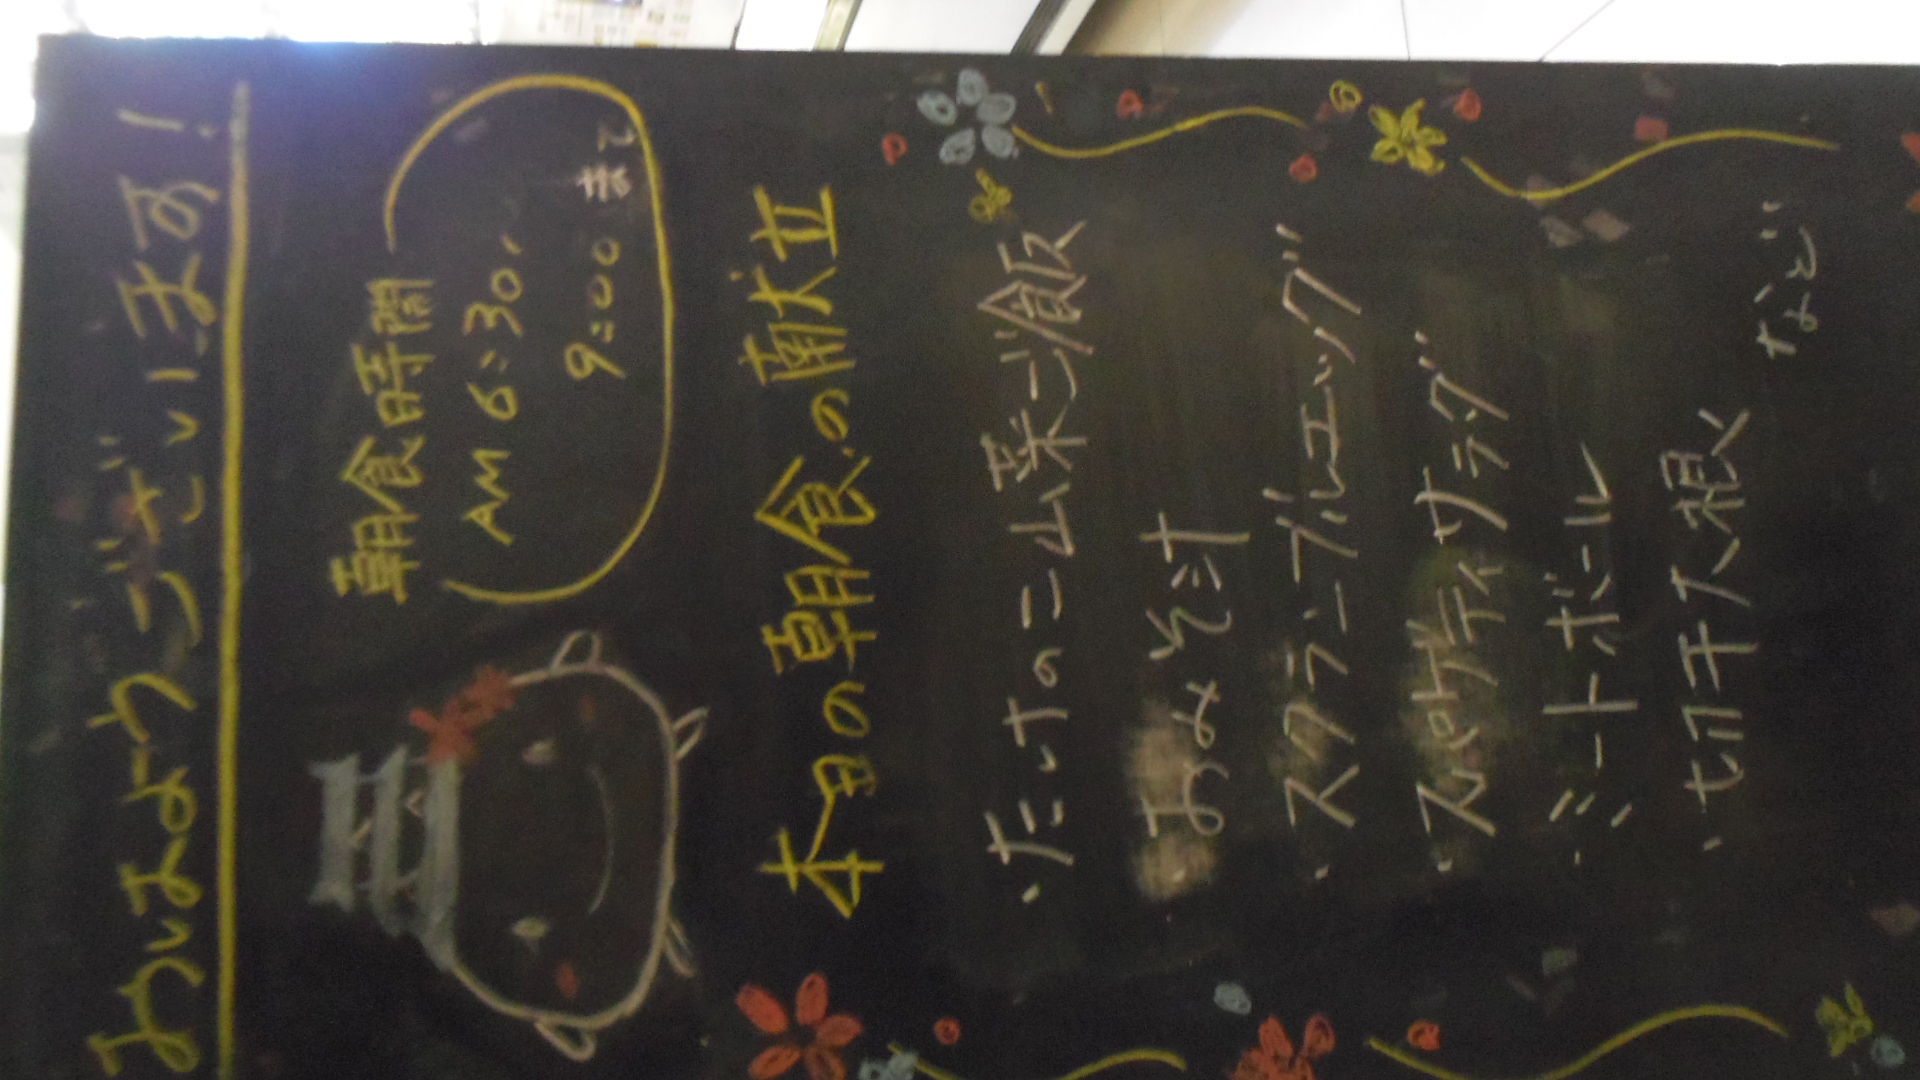 おはようございます!
朝食時間
AM 6:30〜
9:00まで
本日の朝食の献立
・たけのこ山菜ご飯
・おみそ汁
・スクランブルエッグ
・スパゲティサラダ
・ミートボール
・切干大根
など